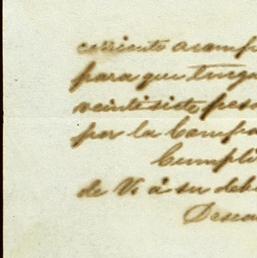 corriente acompa
para que tenga
veintisiete pesos
por la Compa
Cumpli
de V. á su debi
Desea